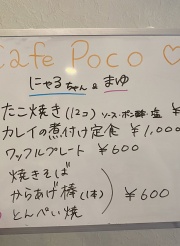 Cafe Poco ♡
にゃるちゃん & まゆ
たこ焼き(12コ) ソース・ポン酢・塩 ¥
カレイの煮付け定食 ¥1,000
ワッフルプレート ¥600
焼きそば
からあげ棒(1本) ¥600
とんぺい焼